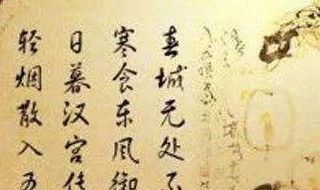 春城无处不
寒食东风御
日暮汉宫传
轻烟散入五